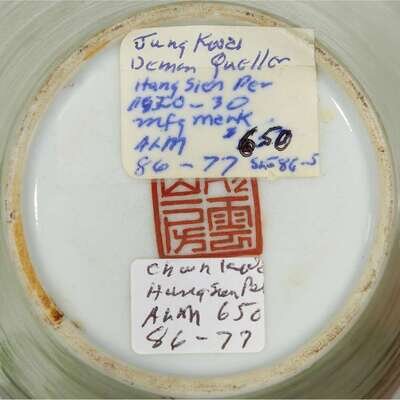 Jung Kwai
Demon Queller
Hung Sien Per
1920-30
mfg mark
$650
ALM
86-77 SLS86-5
雲
山房
Chun Kwai
Hung Sien Per
ALM 650
86-77